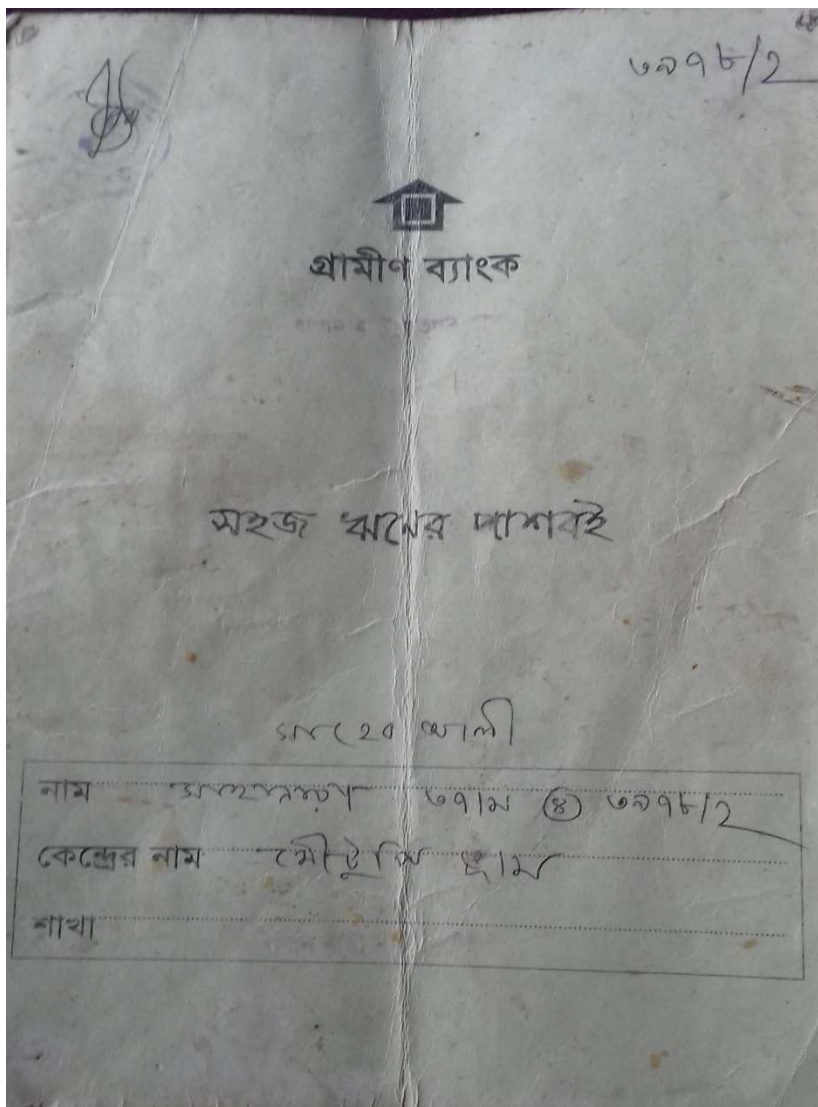 ৩৯৭৮/2
গ্রামীণ ব্যাংক
সহজ ঋনের পাশবই
সাহেব আলী
নাম ৩৭/ম ④ ৩৯৭৮/2
কেন্দ্রের নাম
শাখা